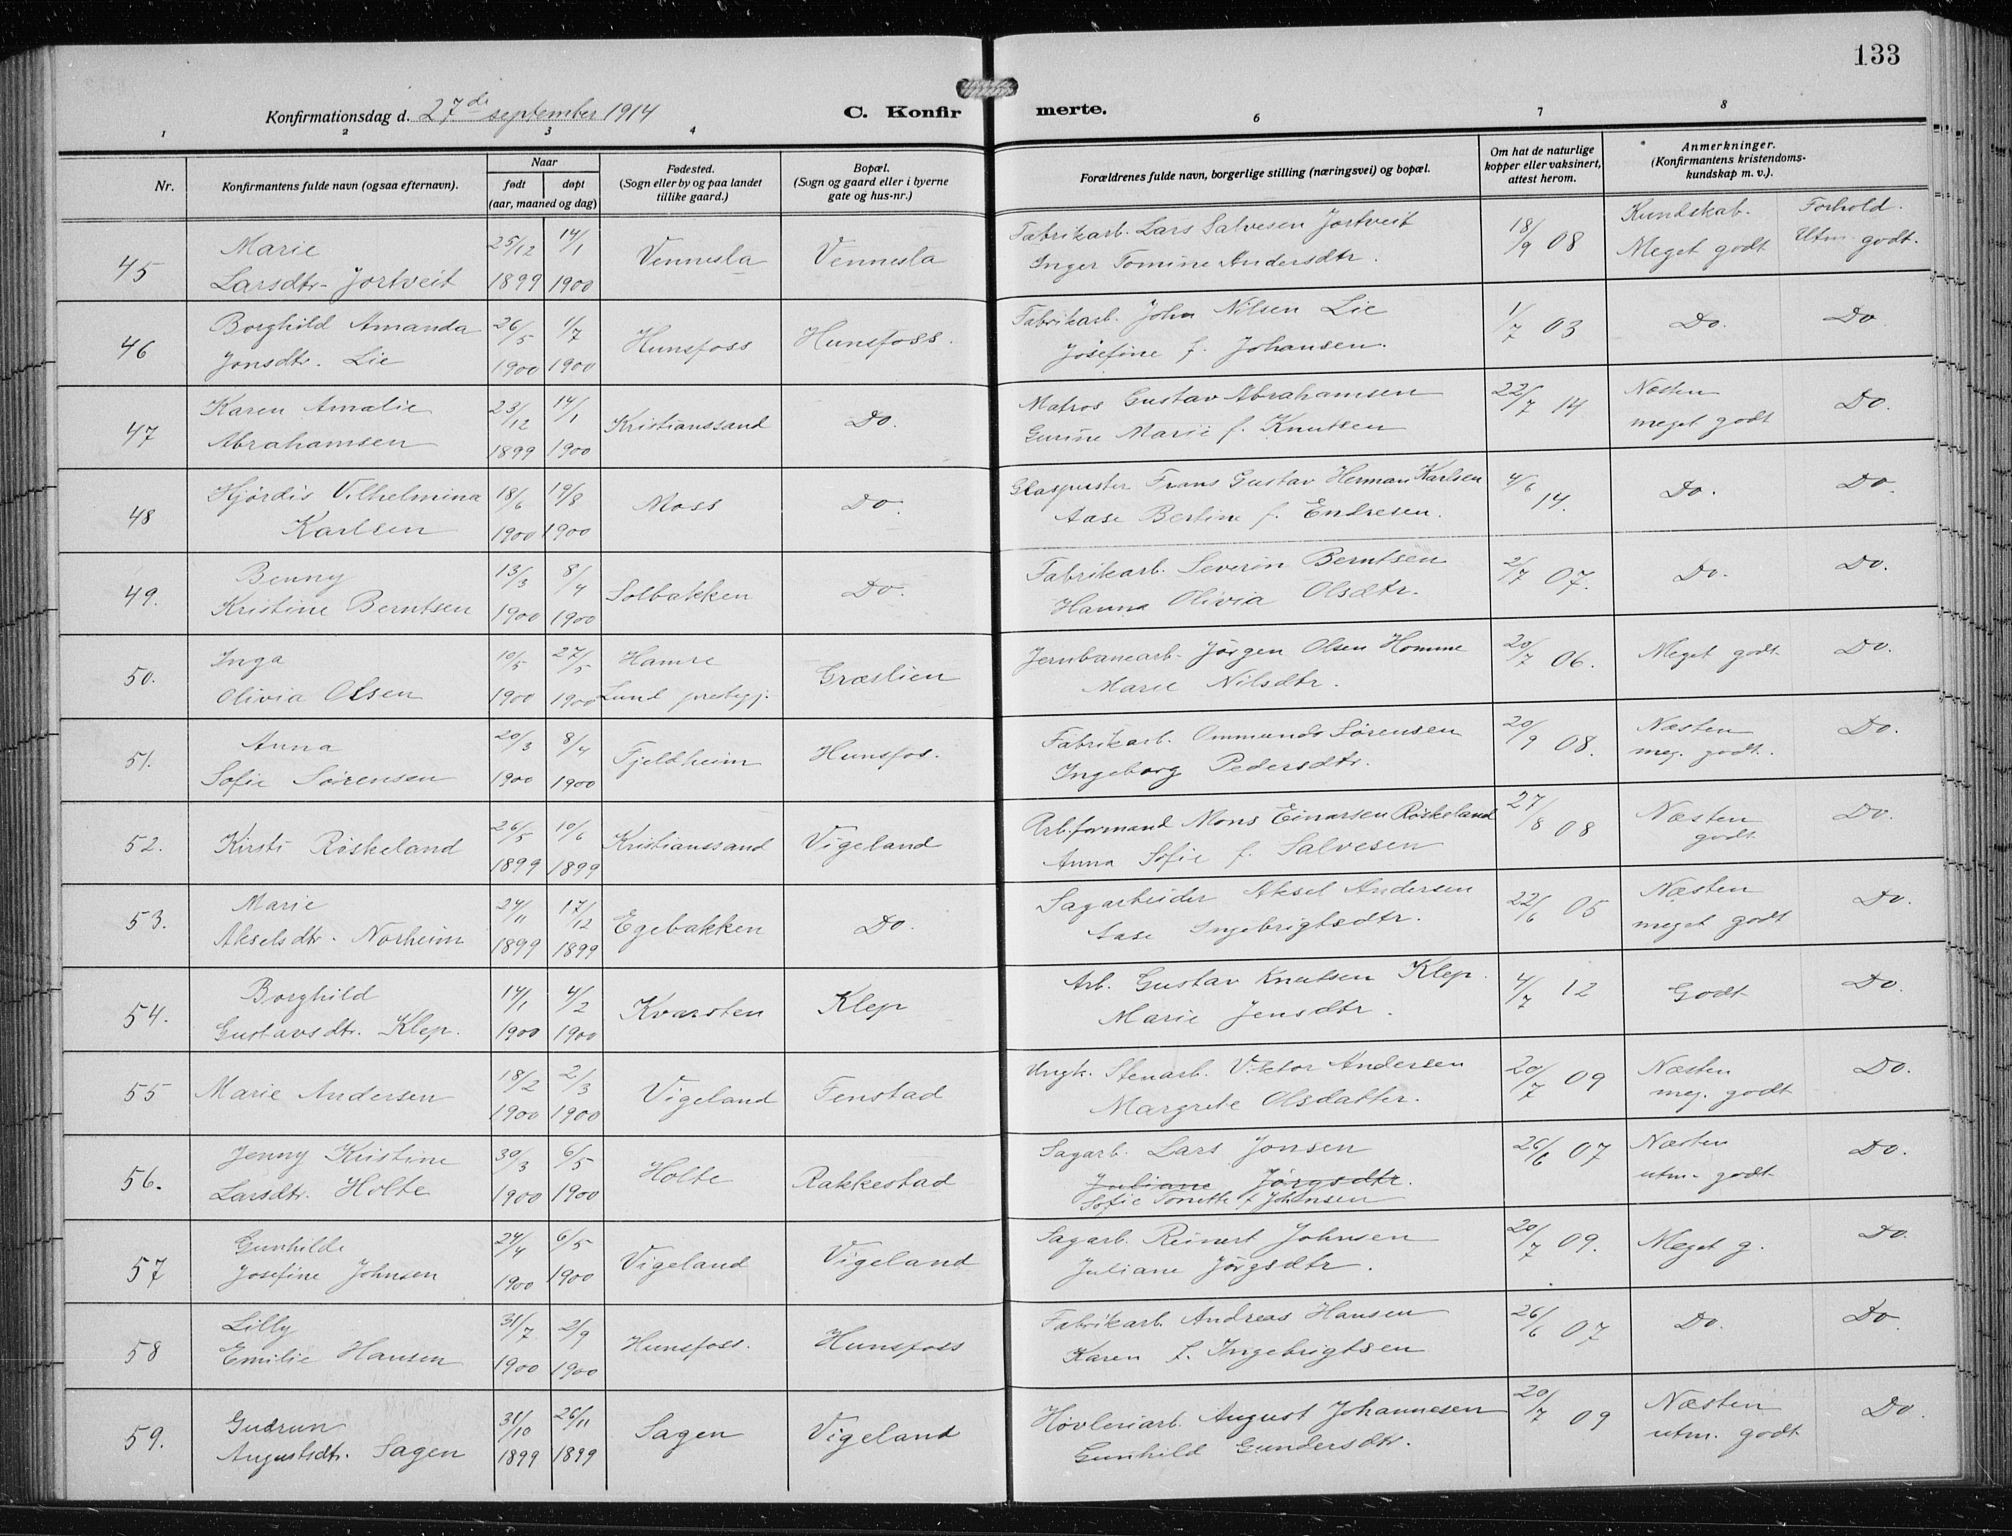 133
Konfirmationsdag d. 27de september 1914
C. Konfir merte.
1 2 3 4 6 7 8
Nr.
Konfirmantens fulde navn (ogsaa efternavn).
Naar
født døpt
(aar, maaned og dag)
Fødested.
(Sogn eller by og paa landet
tillike gaard.)
Bopæl.
(Sogn og gaard eller i byerne
gate og hus-nr.)
Forældrenes fulde navn, borgerlige stilling (næringsvei) og bopæl.
Om hat de naturlige
kopper eller vaksinert,
attest herom.
Anmerkninger.
(Konfirmantens kristendoms-
kundskap m. v.).
Kundskab. Forhold.
45 Marie 25/12 14/1 Vennesla Vennesla Fabrikarb. Lars Salvesen Jortveit 18/9 08 Meget godt Utm. godt.
Larsdtr. Jortveit 1899 1900 Inger Tomine Andersdtr.
46 Borghild Amanda 26/5 1/7 Hunsfoss Hunsfoss. Fabrikarb. John Nilsen Lie 1/7 03 Do. Do
Jonsdtr. Lie 1900 1900 Josefine f. Johansen.
47 Karen Amalie 23/12 14/1 Kristianssand Do. Matros Gustav Abrahamsen 22/7 14 Næsten Do.
Abrahamsen 1899 1900 Gurine Marie f. Knutsen meget godt
48 Hjørdis Vilhelmina 18/6 19/8 Moss Do. Glaspuster Frans Gustav Herman Karlsen 4/6 14. Do. Do.
Karlsen 1900 1900 Aase Bertine f. Endresen.
49. Benny 13/3 8/4 Solbakken Do. Fabrikarb. Severin Berntsen 2/7 07. Do. Do.
Kristine Berntsen 1900 1900 Hanna Olivia Olsdtr.
50. Inga 10/5 27/5 Hamre Græslien Jernbanearb. Jørgen Olsen Homme 20/7 06. Meget godt Do.
Olivia Olsen 1900 1900 Lund prestegj. Marie Nilsdtr.
51. Anna 20/3 8/4 Fjeldheim Hunsfos. Fabrikarb. Ommund Sørensen 20/9 08. Næsten Do.
Sofie Sørensen 1900 1900 Ingeborg Pedersdtr. meg. godt.
52. Kirsti Røskeland 26/5 10/6 Kristianssand Vigeland Arb.formand Mons Einarsen Røskeland 27/8 08 Næsten Do.
1899 1899 Anna Sofie f. Salvesen godt
53. Marie 24/11 17/12 Egebakken Do. Sagarbeider Aksel Andersen 22/6 05 Næsten Do.
Akselsdtr. Norheim 1899 1899 Aase Ingebrigtsdtr. meget godt
54. Borghild 14/1 4/2 Kvarsten Klep Arb. Gustav Knutsen Klep. 4/7 12 Godt Do.
Gustavsdtr. Klep. 1900 1900 Marie Jensdtr.
55 Marie Andersen 18/2 2/3 Vigeland Fenstad Ungk. Stenarb. Viktor Andersen 20/7 09 Næsten Do.
1900 1900 Margrete Olsdatter. meg. godt
56. Jenny Kristine 30/3 6/5 Holte Rakkestad Sagarb. Lars Jonsen 26/6 07 Næsten Do.
Larsdtr. Holte 1900 1900 Juliane Jørgsdtr. utm. godt
Sofie Tonette f Johnsen
57 Gunhilde 24/4 6/5 Vigeland Vigeland Sagarb. Reinert Johnsen 20/7 09. Meget g. Do.
Josefine Johnsen 1900 1900 Juliane Jørgsdtr.
58 Lilly 31/7 2/9 Hunsfoss. Hunsfoss Fabrikarb. Andreas Hansen 26/6 07 Do. Do
Emilie Hansen 1900 1900 Karen f. Ingebrigtsen
59. Gudrun 31/10 26/11 Sagen Vigeland Høvleriarb. August Johannesen 20/7 09 Næsten Do.
Augustsdtr. Sagen 1899 1899 Gunhild Gundersdtr. utm. godt